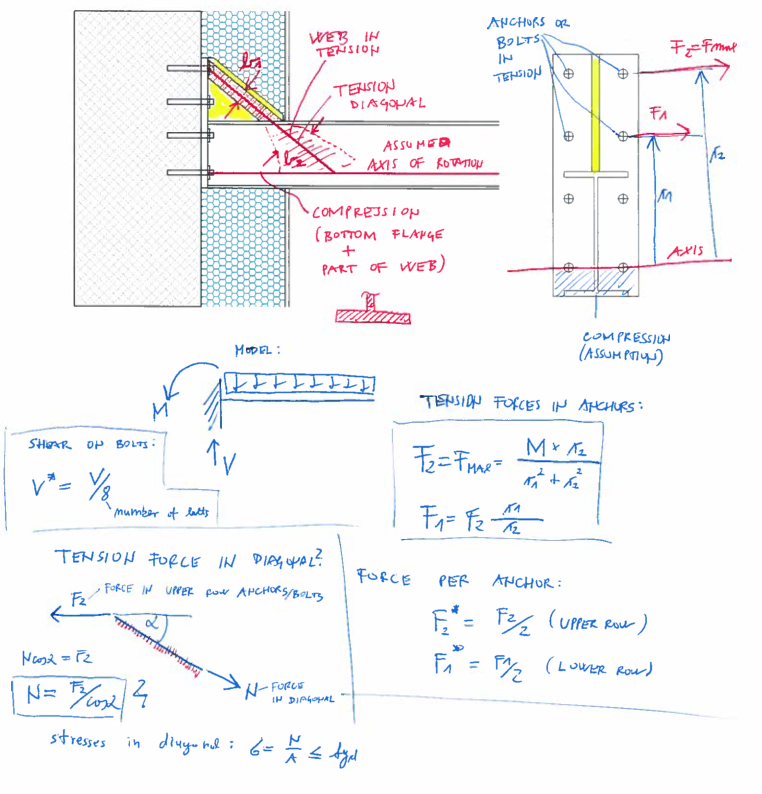 WEB IN
TENSION
TENSION
DIAGONAL
ASSUMED
AXIS OF ROTATION
COMPRESSION
(BOTTOM FLANGE
+
PART OF WEB)
ANCHORS OR
BOLTS
IN
TENSION
F₂=Fmax
F₁
r₂
r₁
AXIS
COMPRESSION
(ASSUMPTION)
MODEL:
M
V
SHEAR ON BOLTS:
V* = V/8
number of bolts
TENSION FORCES IN ANCHORS:
F₂ = FMAX = M × r₂ / r₁² + r₂²
F₁ = F₂ r₁/r₂
TENSION FORCE IN DIAGONAL?
F₂ FORCE IN UPPER ROW ANCHORS/BOLTS
α
N cosα = F₂
N = F₂/cosα
N - FORCE
IN DIAGONAL
stresses in diagonal: σ = N/A ≤ fyd
FORCE PER ANCHOR:
F₂* = F₂/2 (UPPER ROW)
F₁* = F₁/2 (LOWER ROW)